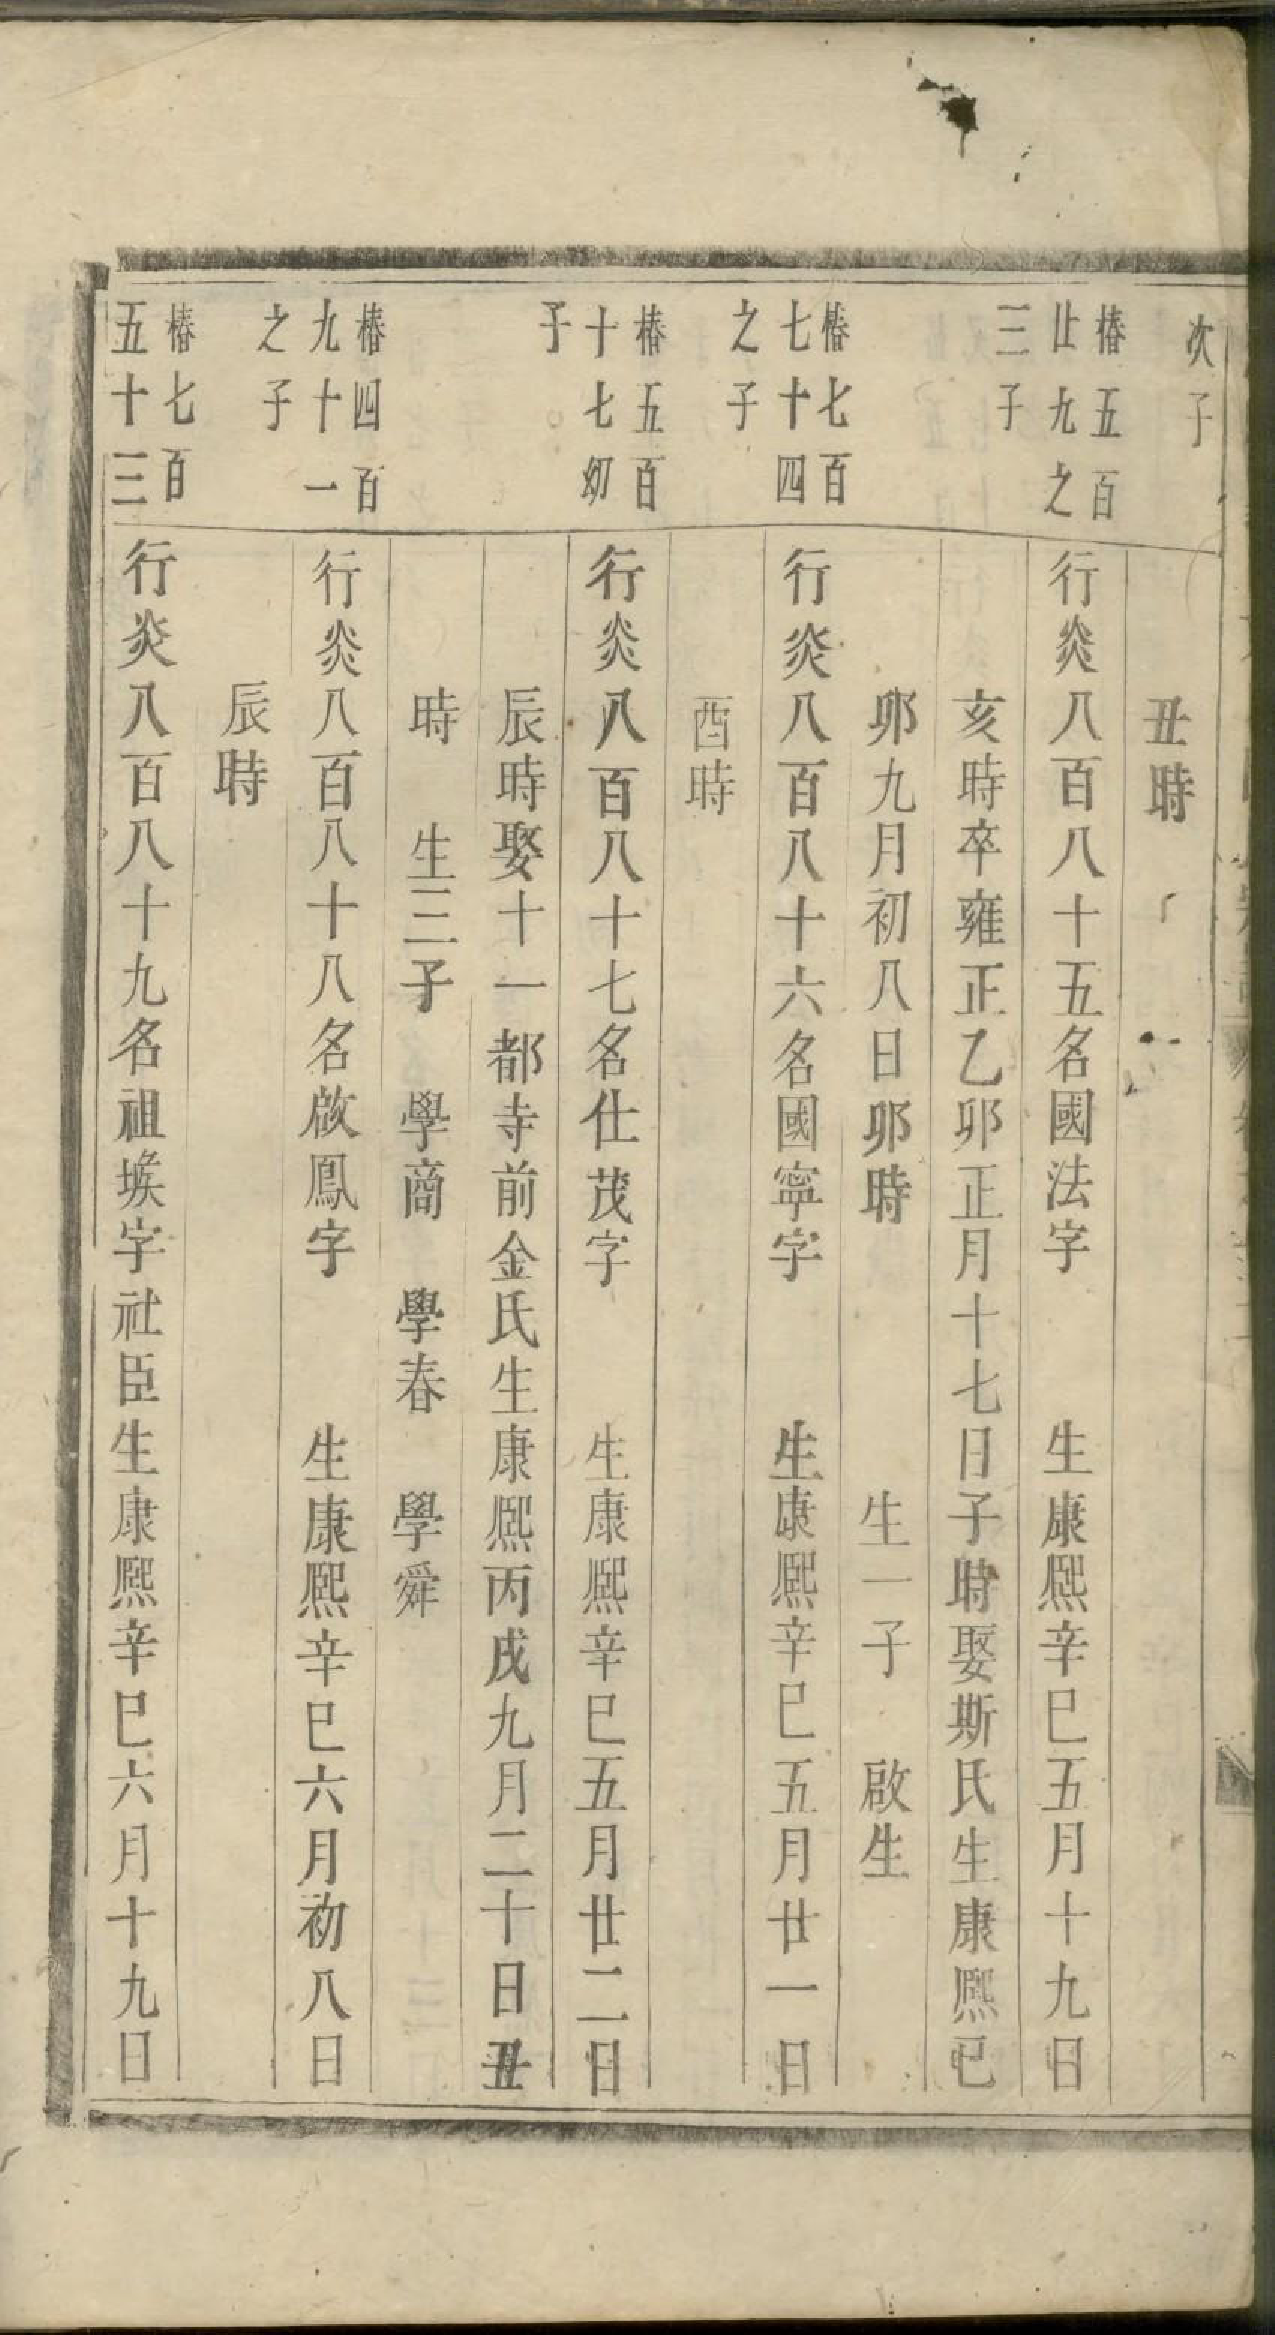 次子
丑時
椿五百
廿九之
三子
行炎八百八十五名國法字 生康熙辛巳五月十九日
亥時卒雍正乙卯正月十七日子時娶斯氏生康熙己
卯九月初八日卯時 生一子 啟生
椿七百
七十四
之子
行炎八百八十六名國寧字 生康熙辛巳五月廿一日
酉時
椿五百
十七幼
子
行炎八百八十七名仕茂字 生康熙辛巳五月廿二日
辰時娶十一都寺前金氏生康熙丙戌九月二十日丑
時 生三子 學商 學春 學舜
椿四百
九十一
之子
行炎八百八十八名啟鳳字 生康熙辛巳六月初八日
辰時
椿七百
五十三
行炎八百八十九名祖堠字社臣生康熙辛巳六月十九日